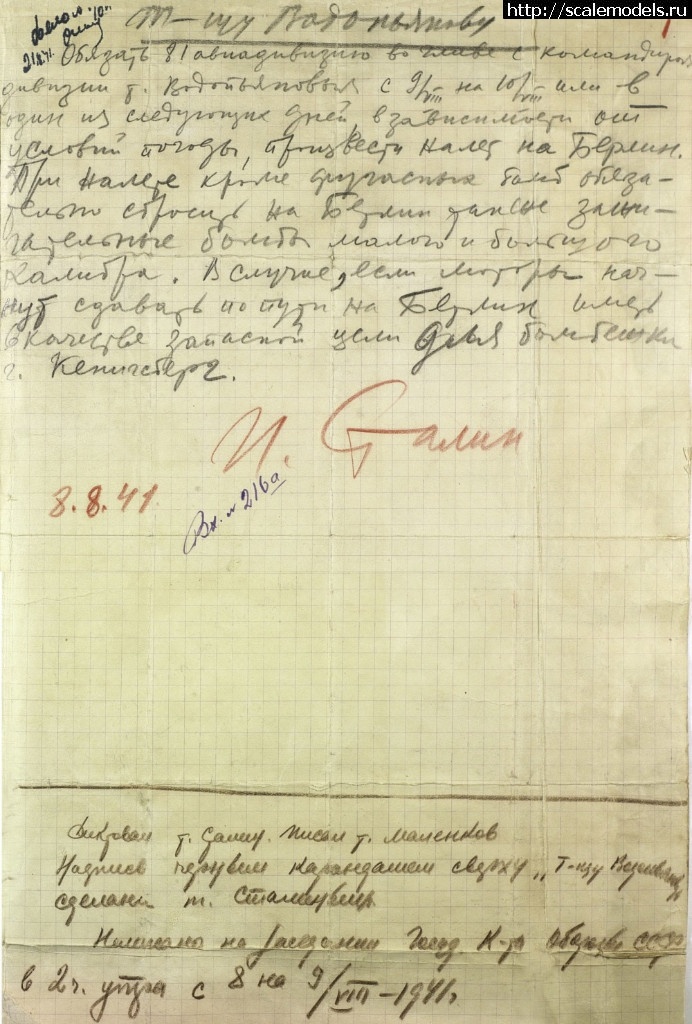 http://scalemodels.ru
1
Т-щу Водопьянову
Обязать 81 авиадивизию во главе с командиром
дивизии т. Водопьяновым с 9/VIII на 10/VIII или в
один из следующих дней, в зависимости от
условий погоды, произвести налет на Берлин.
При налете кроме фугасных бомб обяза-
тельно сбросить на Берлин также зажи-
гательные бомбы малого и большого
калибра. В случае, если моторы нач-
нут сдавать по пути на Берлин иметь
в качестве запасной цели для бомбежки
г. Кенигсберг.
И. Сталин
8.8.41
Вх. № 216а
Диктовал т. Сталин. Писал т. Маленков
Надпись черным карандашем сверху „Т-щу Водопьянову"
сделана т. Сталиным
Написано на заседании Госуд. К-та Обороны СССР
в 2 ч. утра с 8 на 9/VIII-1941г.